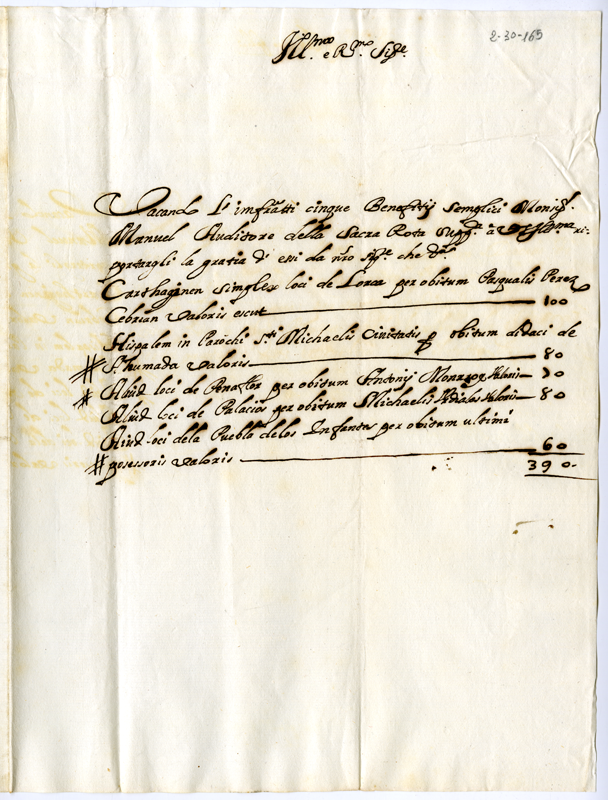 2-30-165
Ill.mo e R.mo Sig.re
Vacando l'infratti cinque Benefitij semplici Monsig.r
Manuel Auditore della Sacra Rota supp.ca a VS Ill.ma im-
partargli la gratia d' essi da n'ro Sig.re che
Carthaginen simplex loci de Lorca per obitum Pasqualis Perez
Cebrian valoris escut 100
Hispalem in Parochi S.ti Michaelis Civitatis p obitum didaci de
Ahumada valoris 80
Aliud loci de Penaflor per obitum Antonij Monrroy valoris 70
Aliud loci de Palacios per obitum Michaelis valoris 80
Aliud loci dela Puebla delos Infantes per obitum ultimi
posessoris valoris 60
390